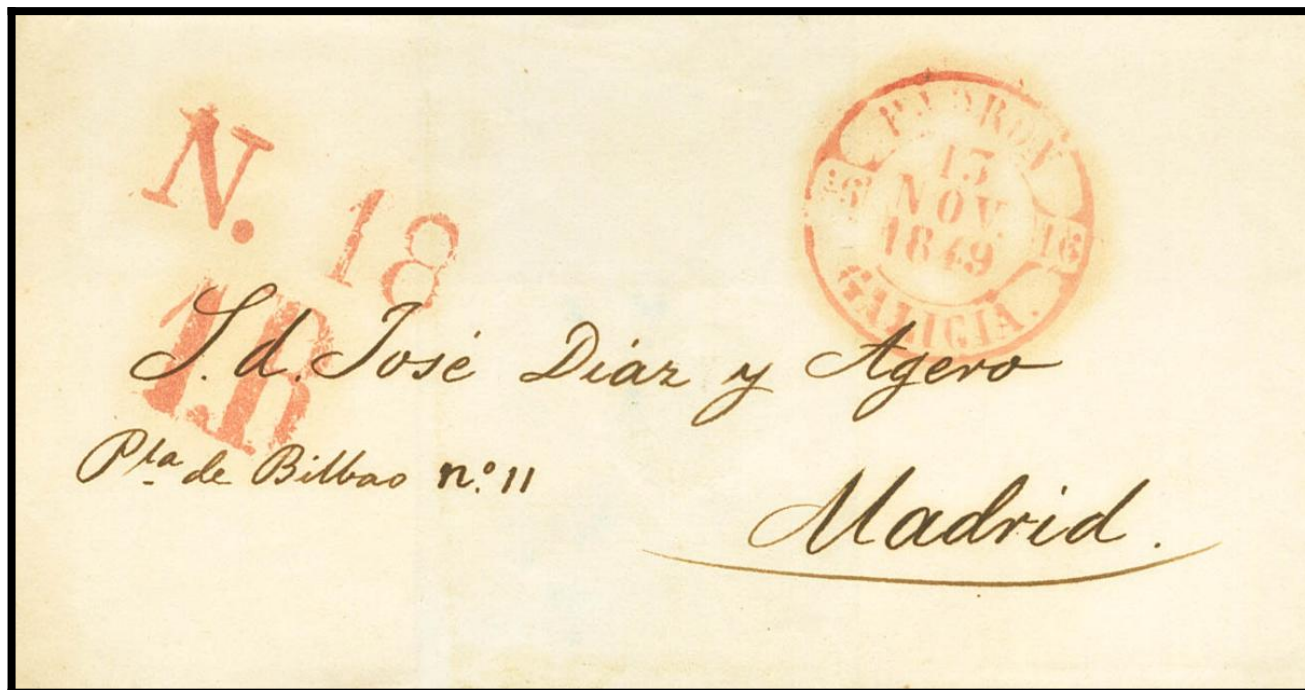 N. 18
PADRON
13
NOV.
1849
16
16
GALICIA.
1R
S. d. José Diaz y Agero
Pta de Bilbao n.º 11
Madrid.